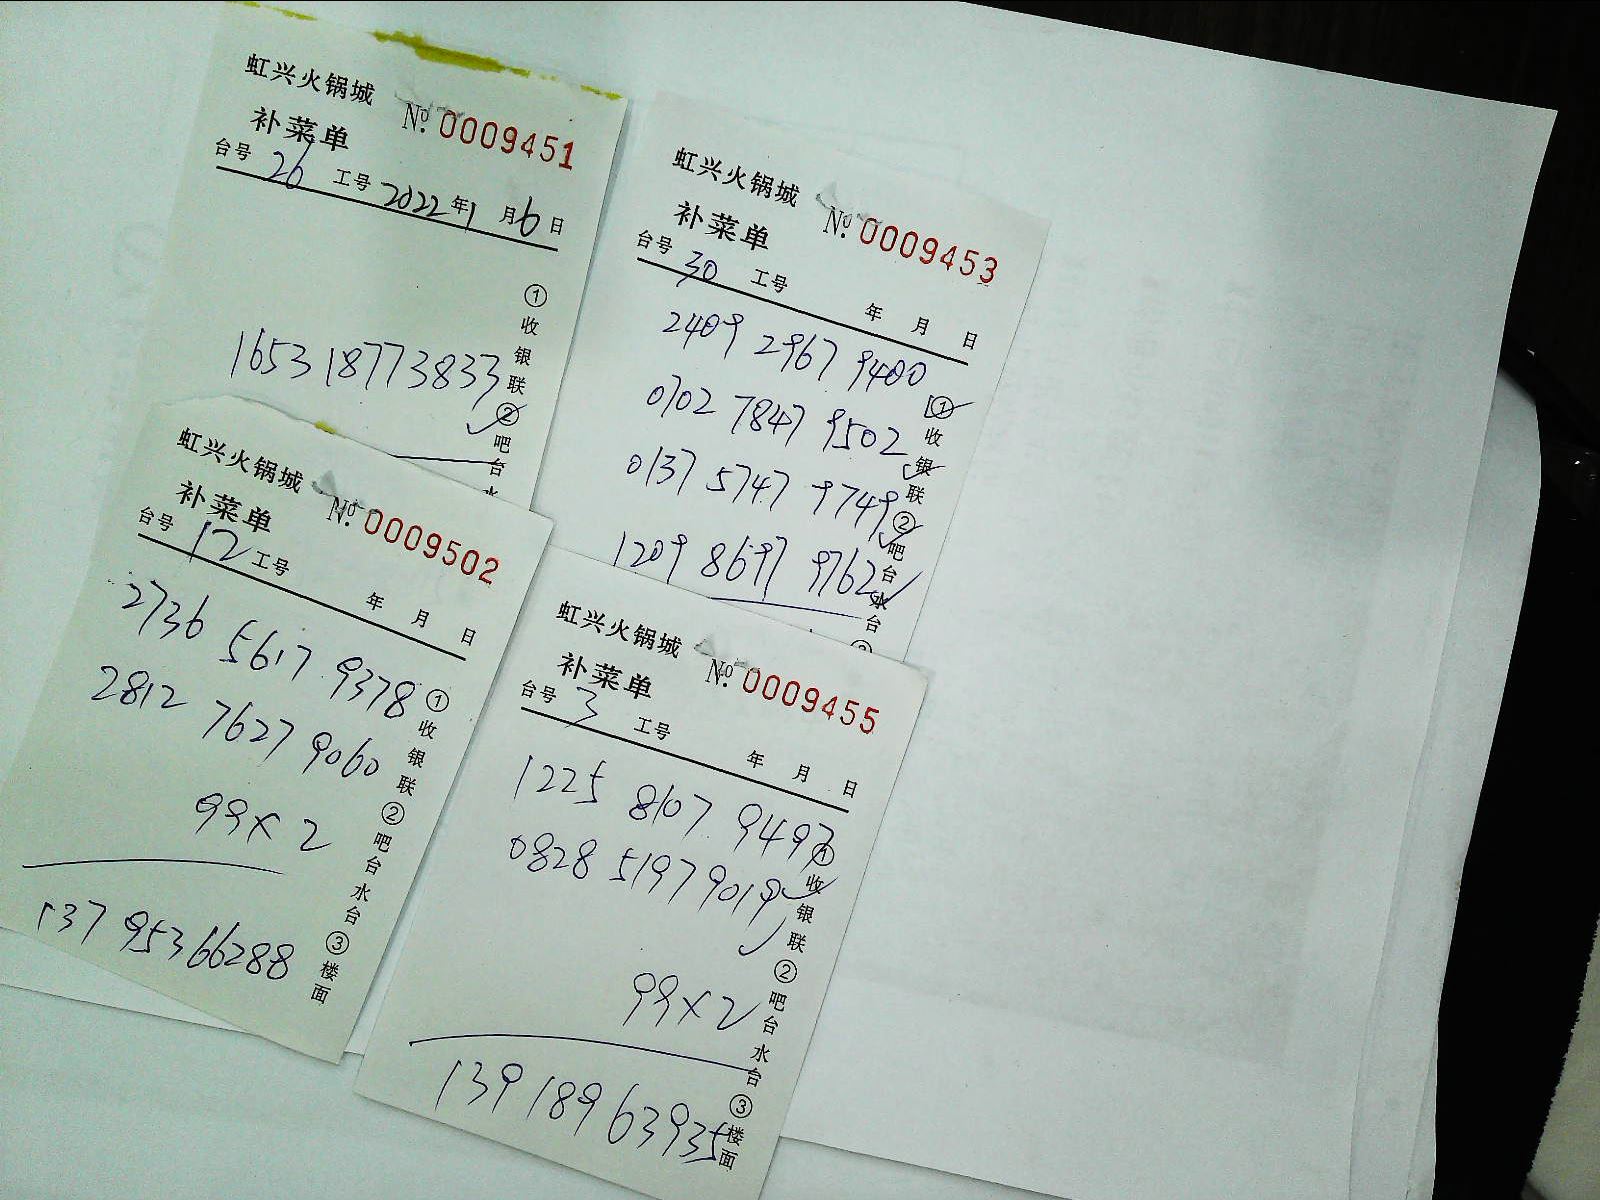 虹兴火锅城
补菜单 № 0009451
台号 26 工号 2022年1月6日
1653 1877 3833
①收银联②吧台水
虹兴火锅城
补菜单 № 0009453
台号 30 工号 年 月 日
2409 2967 9400
0702 7847 9502
0137 5747 9749
1209 8697 9762
①收银联②吧台水台
虹兴火锅城
补菜单 № 0009502
台号 12 工号 年 月 日
2736 5617 9378
2812 7627 9060
99×2
137 95366288
①收银联②吧台水台③楼面
虹兴火锅城
补菜单 № 0009455
台号 3 工号 年 月 日
1225 8107 9497
0828 5197 9019
99×2
139 189 63935
①收银联②吧台水台③楼面